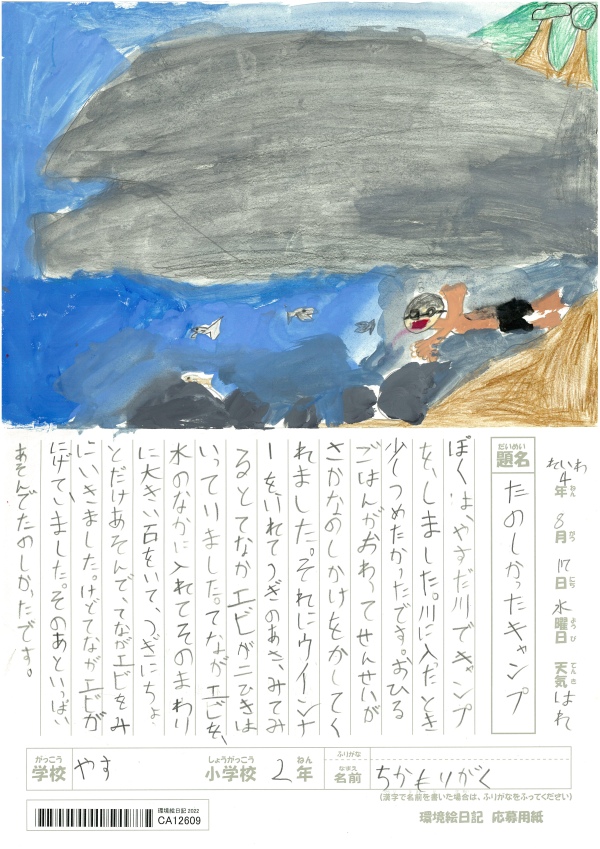 れいわ4年ねん 8月がつ 17日にち 水曜日ようび 天気てんき はれ
題名だいめい たのしかったキャンプ
ぼくは、やすだ川でキャンプ
を、しました。川に入ったとき
少しつめたかったです。おひる
ごはんがおわってせんせいが
さかなのしかけをかしてく
れました。それにウインナ
ーをいれてつぎのあさ、みてみ
るとてながエビが二ひきは
いっていました。てながエビを、
水のなかに入れてそのまわり
に大きい石をいて、つぎにちょ
とだけあそんで、てながエビをみ
にいきました。けどてながエビが
にげていました。そのあといっぱい
あそんでたのしかったです。
学校がっこう やす 小学校しょうがっこう 2年ねん ふりがな 名前なまえ ちかもりがく
(漢字で名前を書いた場合は、ふりがなをふってください)
環境絵日記 応募用紙
環境絵日記 2022
CA12609